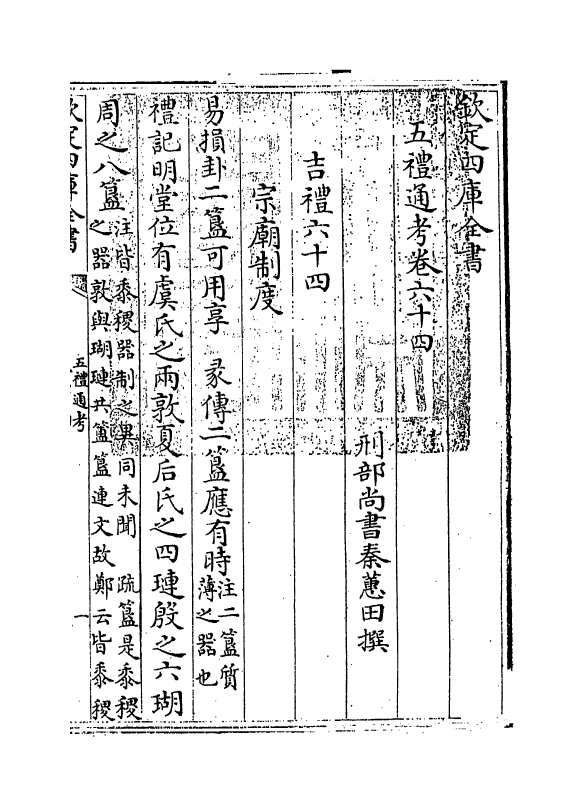 欽定四庫全書
五禮通考卷六十四
刑部尚書秦蕙田撰
吉禮六十四
宗廟制度
易損卦二簋可用享　彖傳二簋應有時注二簋質
薄之器也
禮記明堂位有虞氏之兩敦夏后氏之四璉殷之六瑚
周之八簋注皆黍稷器制之異同未聞　疏簋是黍稷
之器敦與瑚璉共簠簋連文故鄭云皆黍稷
欽定四庫全書
五禮通考
一